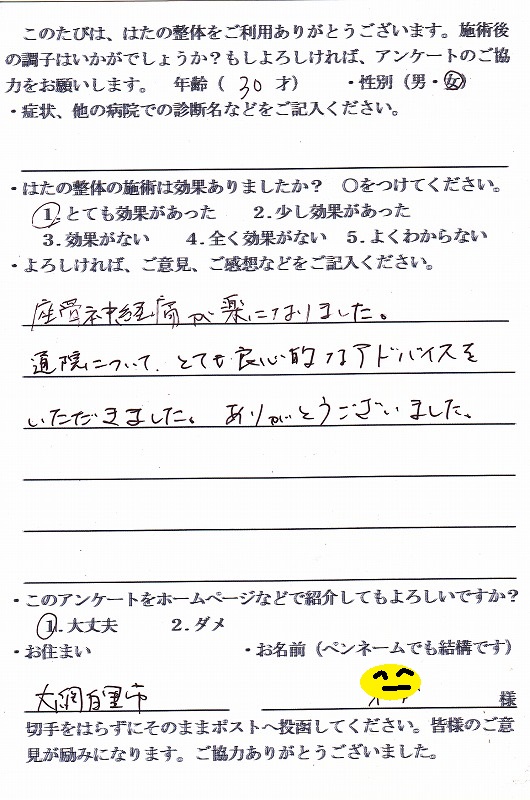 このたびは、はたの整体をご利用ありがとうございます。施術後
の調子はいかがでしょうか？もしよろしければ、アンケートのご協
力をお願いします。 年齢（ 30 才） ・性別（男・女）
・症状、他の病院での診断名などをご記入ください。
・はたの整体の施術は効果ありましたか？ ○をつけてください。
1.とても効果があった 2.少し効果があった
3.効果がない 4.全く効果がない 5.よくわからない
・よろしければ、ご意見、ご感想などをご記入ください。
座骨神経痛が楽になりました。
通院について、とても良心的なアドバイスを
いただきました。ありがとうございました。
・このアンケートをホームページなどで紹介してもよろしいですか？
1.大丈夫 2.ダメ
・お住まい ・お名前（ペンネームでも結構です）
大網白里市 様
切手をはらずにそのままポストへ投函してください。皆様のご意
見が励みになります。ご協力ありがとうございました。